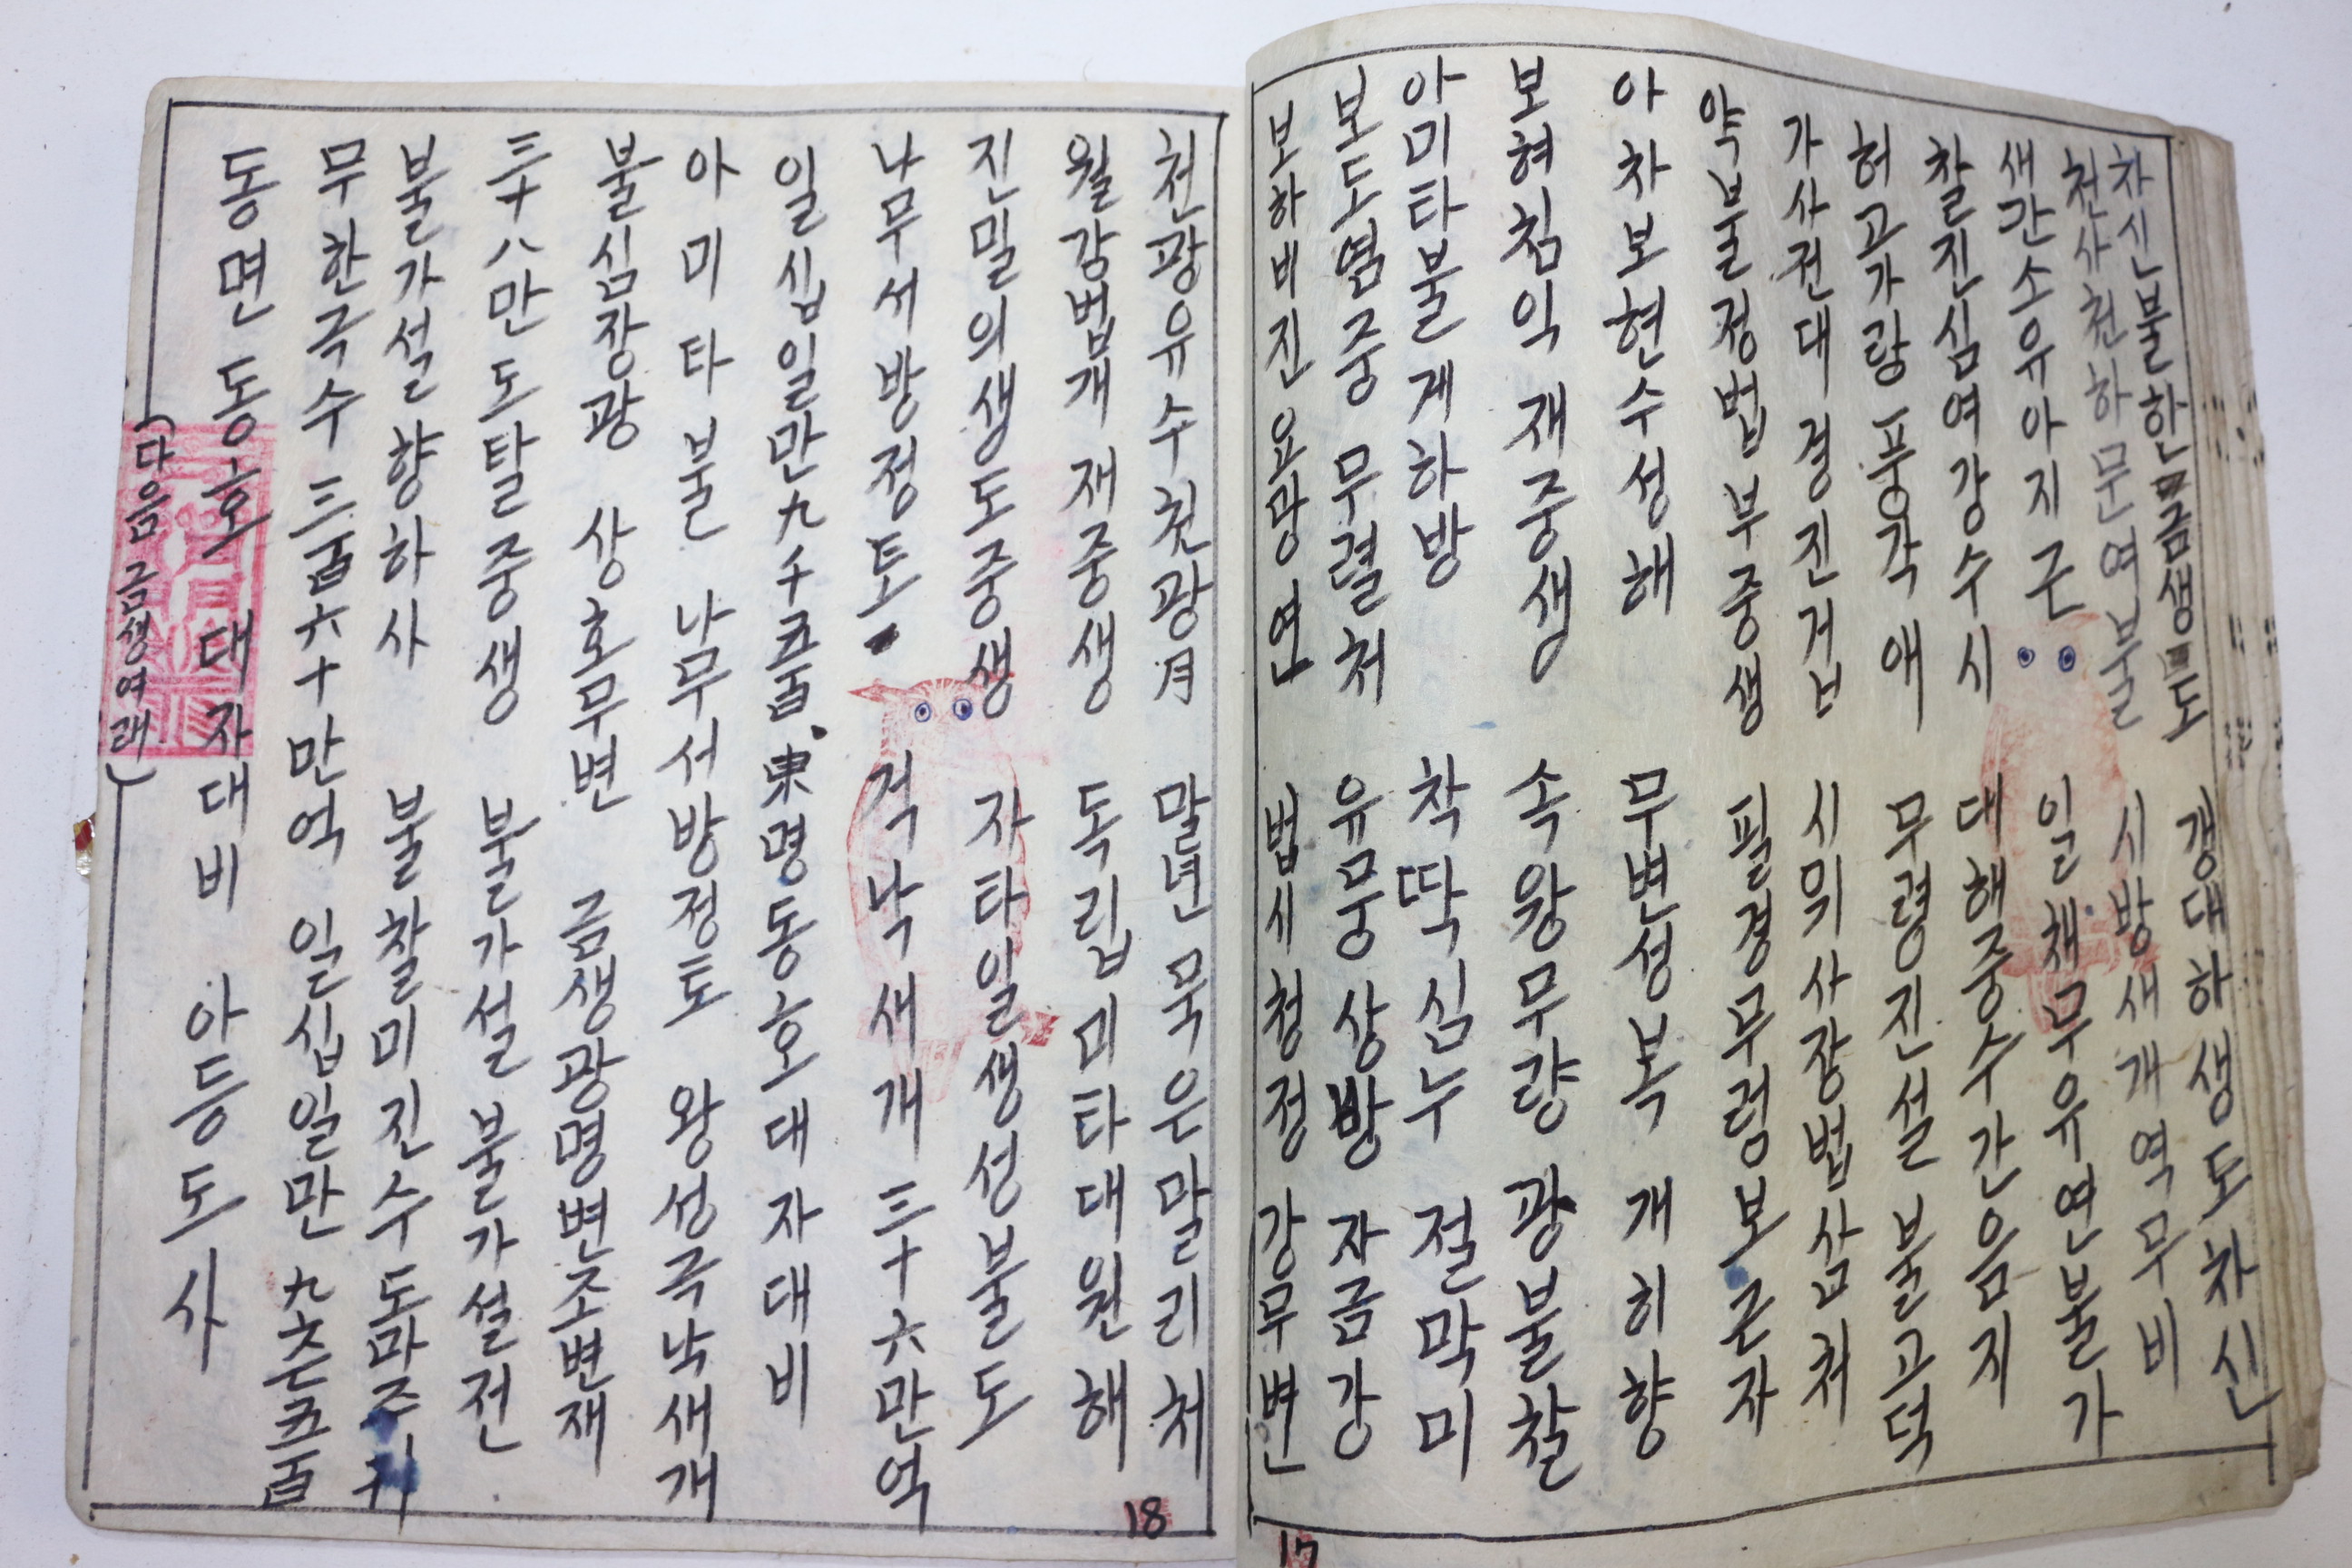 차신불하금생도 갱대하생도차신
천사천하무여불 시방새개역무비
새간소유아지근 일체무유연불가
찰진심여강수시 대해중수간음지
허고가량풍각애 무령진설불고덕
가사전대경진거브 시위사장법삼처
약불정법부중생 필경무렁보근자
아차보현수성해 무변성복개히향
보혀침익재중생 속왕무량광불찰
아미타불게하방 착딱심누절막미
보도염중무렬처 유무상방자금강
보하비진요망연 법시청정강무변
천광유수천광月 말년묵은말리처
월강법개재중생 독립미타대원해
진밀의생도중생 자타일생성불도
나무서방정토 걱낙새개 三十六만억
일십일만九千五百 東명동호대자대비
아미타불 나무서방정토 왕성극낙새개
불심장광 상호무변 금생광명변조변재
三十八만도탈중생 불가설불가설전
불가설항하사 불찰미진수도마주귀
무한극수 三百六十만억 일십일만九千五百
동면동호 대자대비 아등도사
(다음 금생여래)
18
17